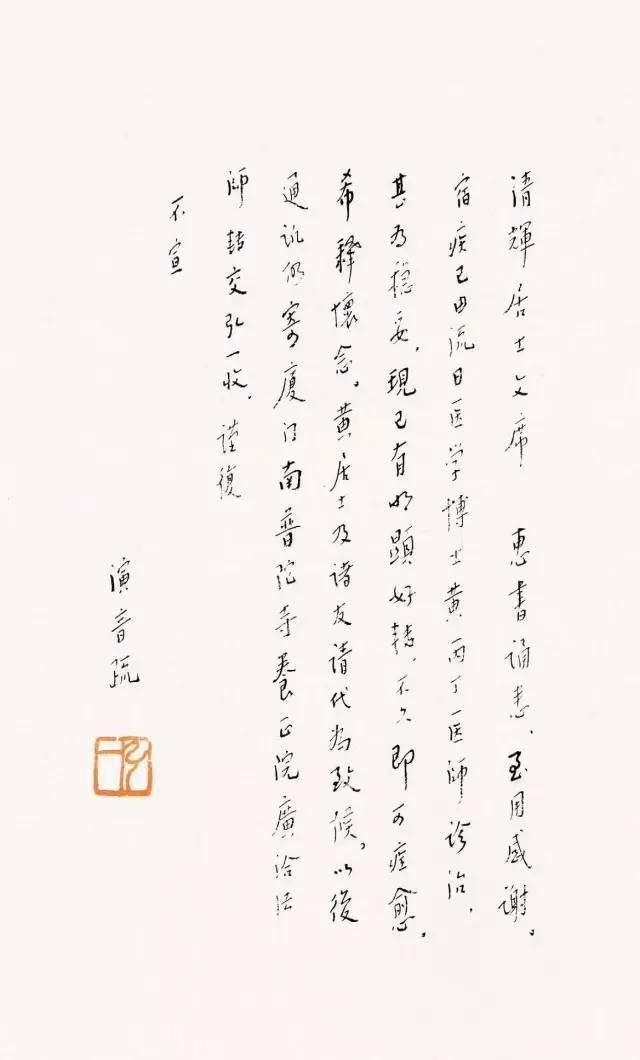 清輝居士文席　惠書誦悉、至用感谢。
宿疾已由流日医学博士黄丙丁医師诊治、
甚为穏妥、現已有明顯好轉、不久即可痊愈。
希釋懷念。黄居士及诸友请代为致候。以後
通讯仍寄廈门南普陀寺養正院廣洽法
師轉交弘一收、謹復
不宣
演音疏
弘一